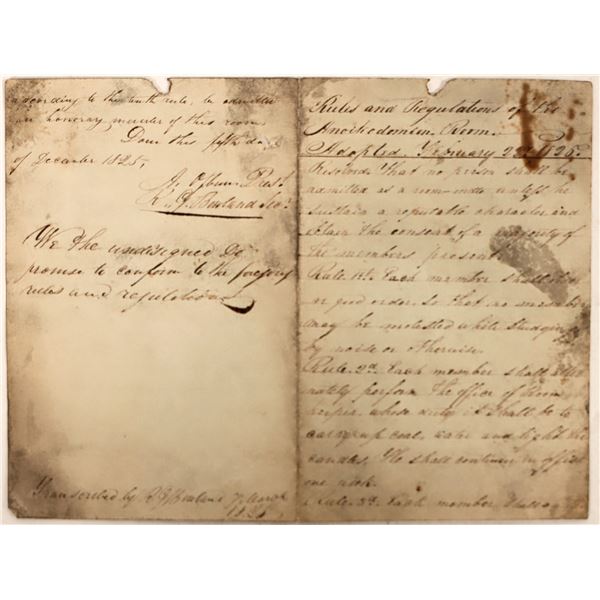 according to the tenth rule, be admitted
an honorary member of this room
Done this fifth day
of December 1825,
J. Osburn Prest.
R. G. Rowland Secy.
We the undersigned do
promise to conform to the foregoing
rules and regulations
Transcribed by R G Rowland
Rules and Regulations of the
Room.
Adopted. February 22d 1825.
Resolved. that no person shall be
admitted as a room-mate unless he
sustain a reputable character and
obtain the consent of a majority of
the members present.
Rule 1st. Each member shall
in good order. so that no member
may be molested while studying
by noise or otherwise.
Rule. 2d. Each member shall alter
nately perform the office of room
keeper whose duty it shall be to
carry up coal, water and light the
candles. He shall continue in office
one week.
Rule. 3d. Each member shall